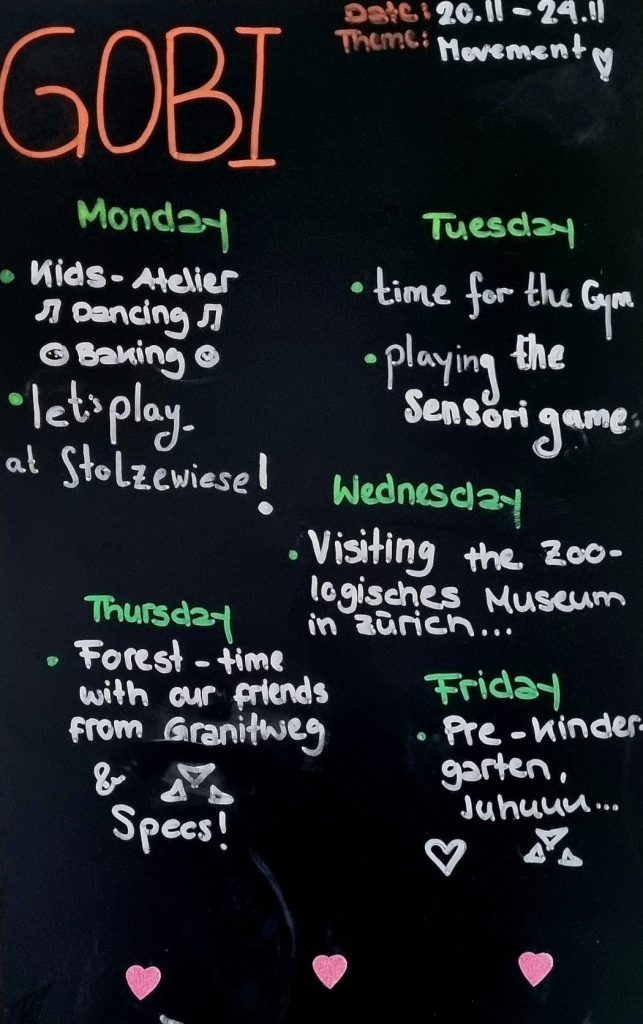 GOBI
Date: 20.11 - 24.11
Theme: Movement
Monday
• Kids - Atelier
♫ Dancing ♫
Baking
• let's play
at Stolzewiese!
Tuesday
• time for the Gym
• playing the
Sensori game
Wednesday
• Visiting the Zoo-
logisches Museum
in Zürich...
Thursday
• Forest - time
with our friends
from Granitweg
&
Specs!
Friday
• Pre - Kinder-
garten,
Juhuuu...